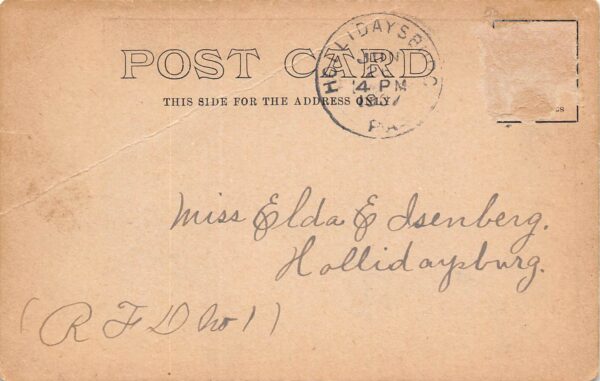 POST CARD
THIS SIDE FOR THE ADDRESS ONLY.
HOLLIDAYSBURG
JUN
2
4 PM
PA.
Miss Elda E Isenberg.
Hollidaysburg.
(R F D No 1)